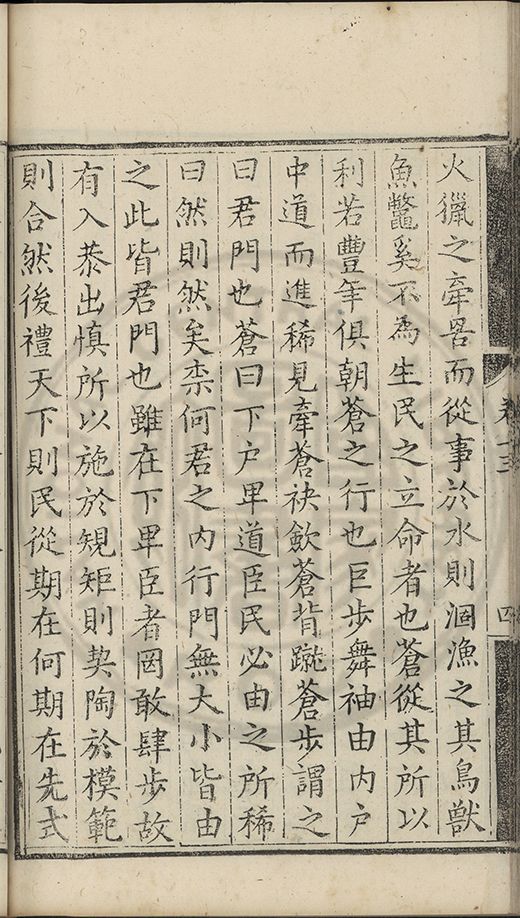 火獵之牽罟而從事於水則涸漁之其鳥獸
魚鼈奚不為生民之立命者也蒼從其所以
利若豐年俱朝蒼之行也巨步舞袖由内戶
中道而進稀見牽蒼袂歛蒼背蹴蒼步謂之
曰君門也蒼曰下戶卑道臣民必由之所稀
曰然則然矣柰何君之内行門無大小皆由
之此皆君門也雖在下卑臣者罔敢肆步故
有入恭出慎所以施於規矩則契陶於模範
則合然後禮天下則民從期在何期在先式